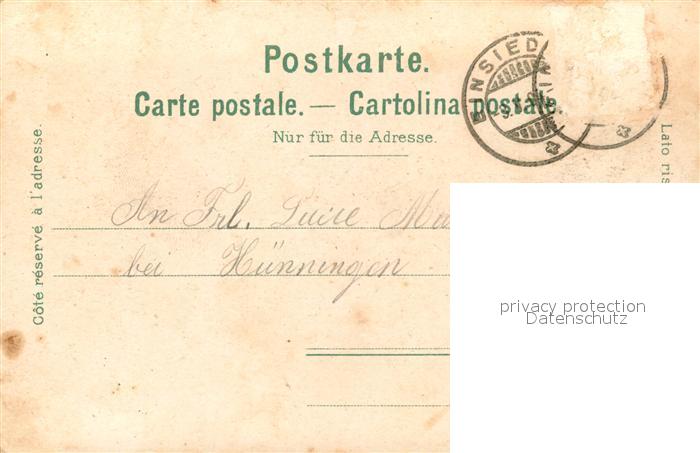 Postkarte.
Carte postale. — Cartolina postale.
Nur für die Adresse.
Côté réservé à l'adresse.
Lato ris
EINSIED
An Frl. Luise
bei Hünningen
privacy protection
Datenschutz